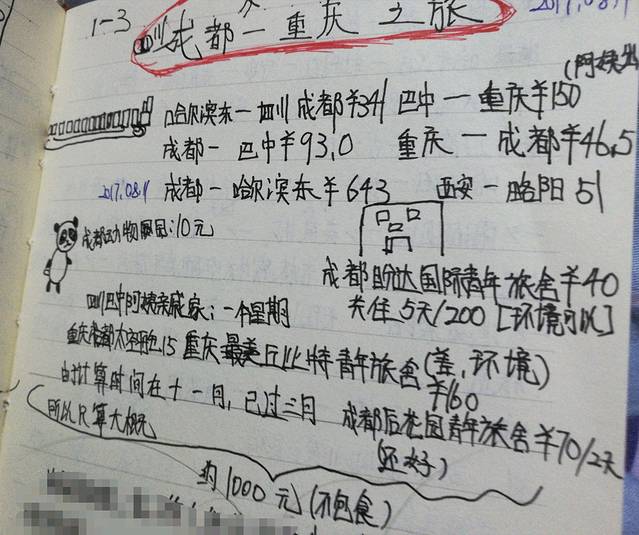 1-3
成都一重庆之旅
2017.08.1
(阿姨出
哈尔滨东一四川成都¥341 巴中一重庆¥150
成都一巴中¥93.0 重庆一成都¥46.5
2017.08.9 成都一哈尔滨东¥643 西安一略阳51
成都动物园:10元
成都盼达国际青年旅舍¥40
四川巴中阿姨亲戚家:一个星期 共住5天/200[环境可以]
重庆 太空舱15 重庆最美丘比特青年旅舍(差,环境)
¥160
由于计算时间在十一月,已过三月
成都后花园青年旅舍¥70/2天
所以只算大概
(还好)
约1000元(不包食)